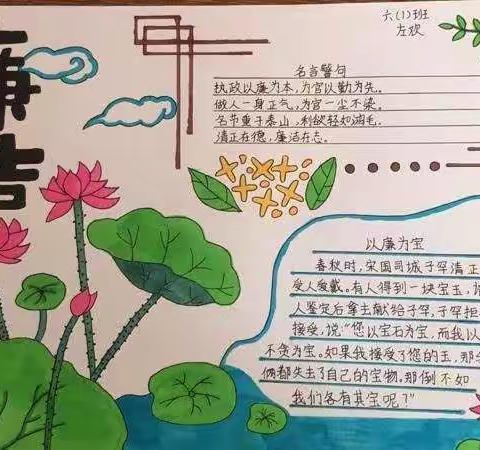 廉洁
六(1)班
左欢
名言警句
执政以廉为本,为官以勤为先。
做人一身正气,为官一尘不染。
名节重于泰山,利欲轻如鸿毛。
清正在德,廉洁在志。
以廉为宝
春秋时,宋国司城子罕清正
受人爱戴。有人得到一块宝玉,请
人鉴定后拿去献给子罕,子罕拒
接受,说:"您以宝石为宝,而我以
不贪为宝。如果我接受了您的玉,那
俩都失去了自己的宝物。那倒不如
我们各有其宝呢?"